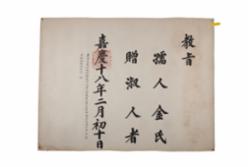 教旨
孺人金氏
贈淑人者
嘉慶十八年二月初十日